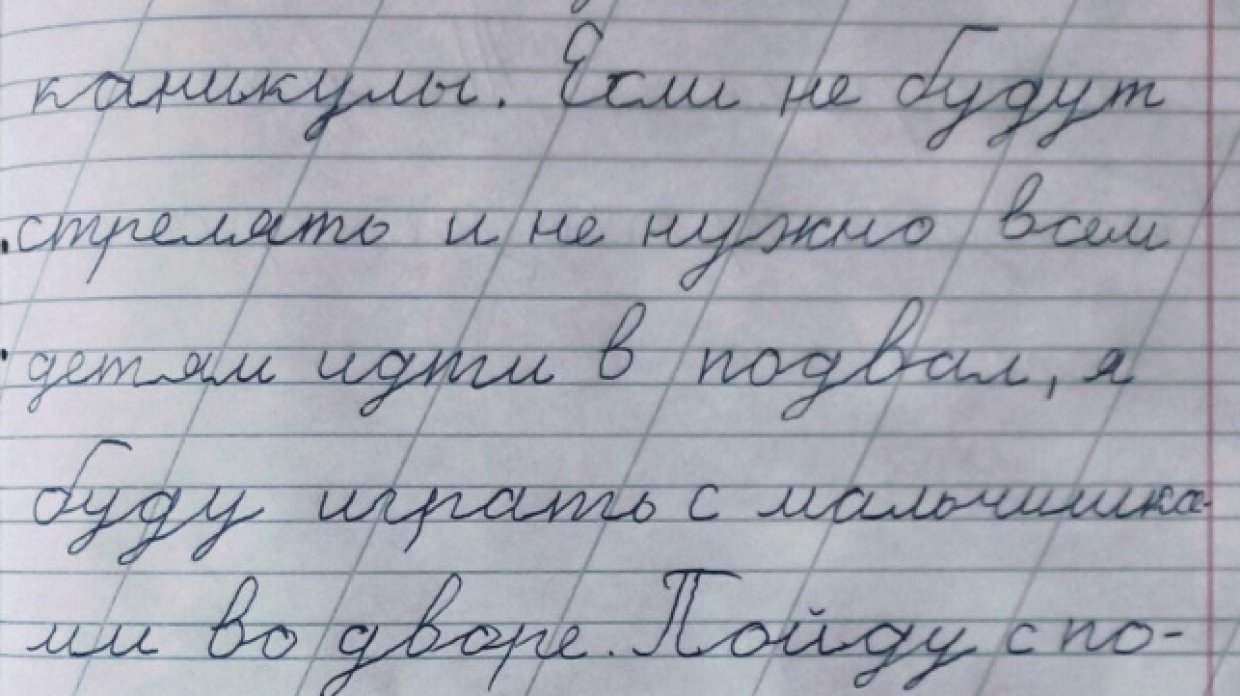 каникулы. Если не будут
стрелять и не нужно всем
детям идти в подвал, я
буду играть с мальчишка-
ми во дворе. Пойду с по-